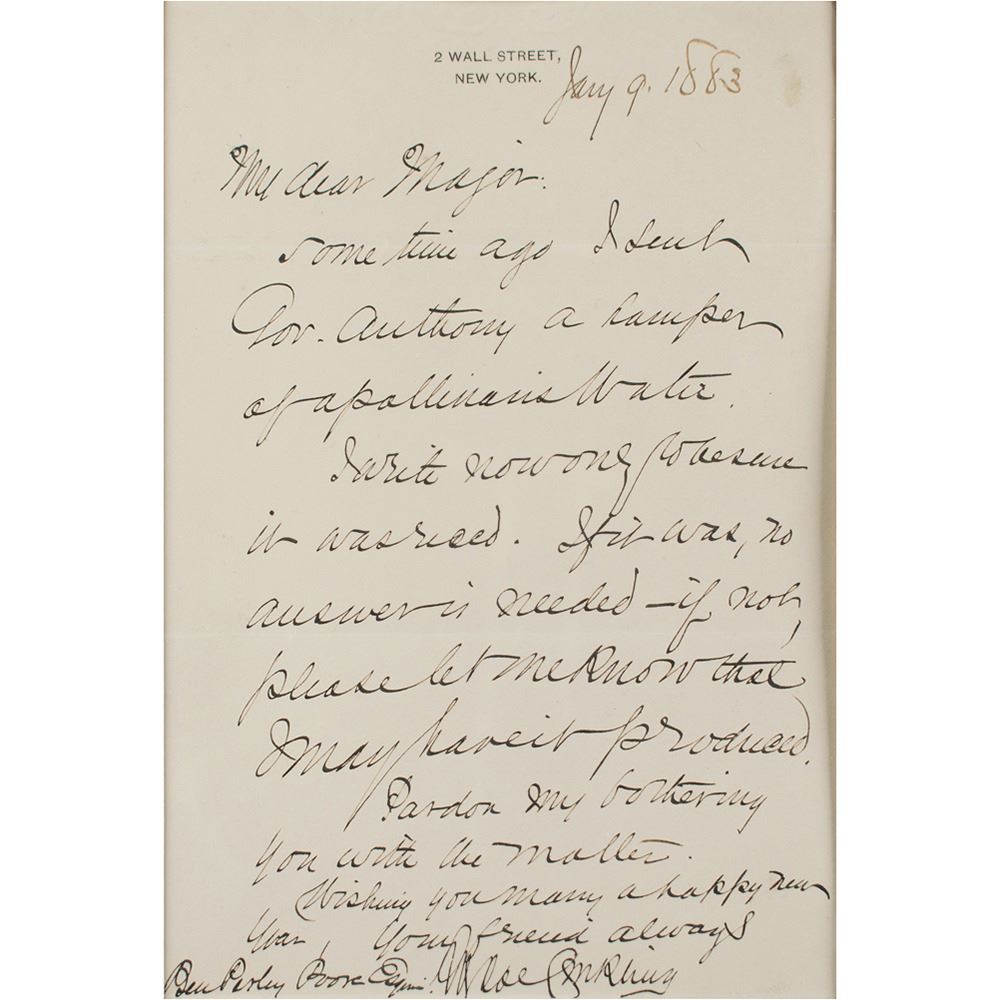 2 WALL STREET,
NEW YORK.
Jany 9. 1883
My dear Major.
some time ago I sent
Gov. Anthony a hamper
of apollinaris Water.
I write now only to be sure
it was recd. If it was, no
answer is needed — if not,
please let me know that
I may have it produced.
Pardon my bothering
you with the matter.
Wishing you many a happy new
year, your friend always
Ben Perley Poore Esquire. Roscoe Conkling